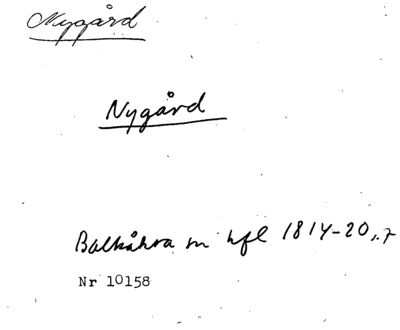 Nygård
Nygård
Balkåkra sn hfl 1814-20, s. 7
Nr 10158